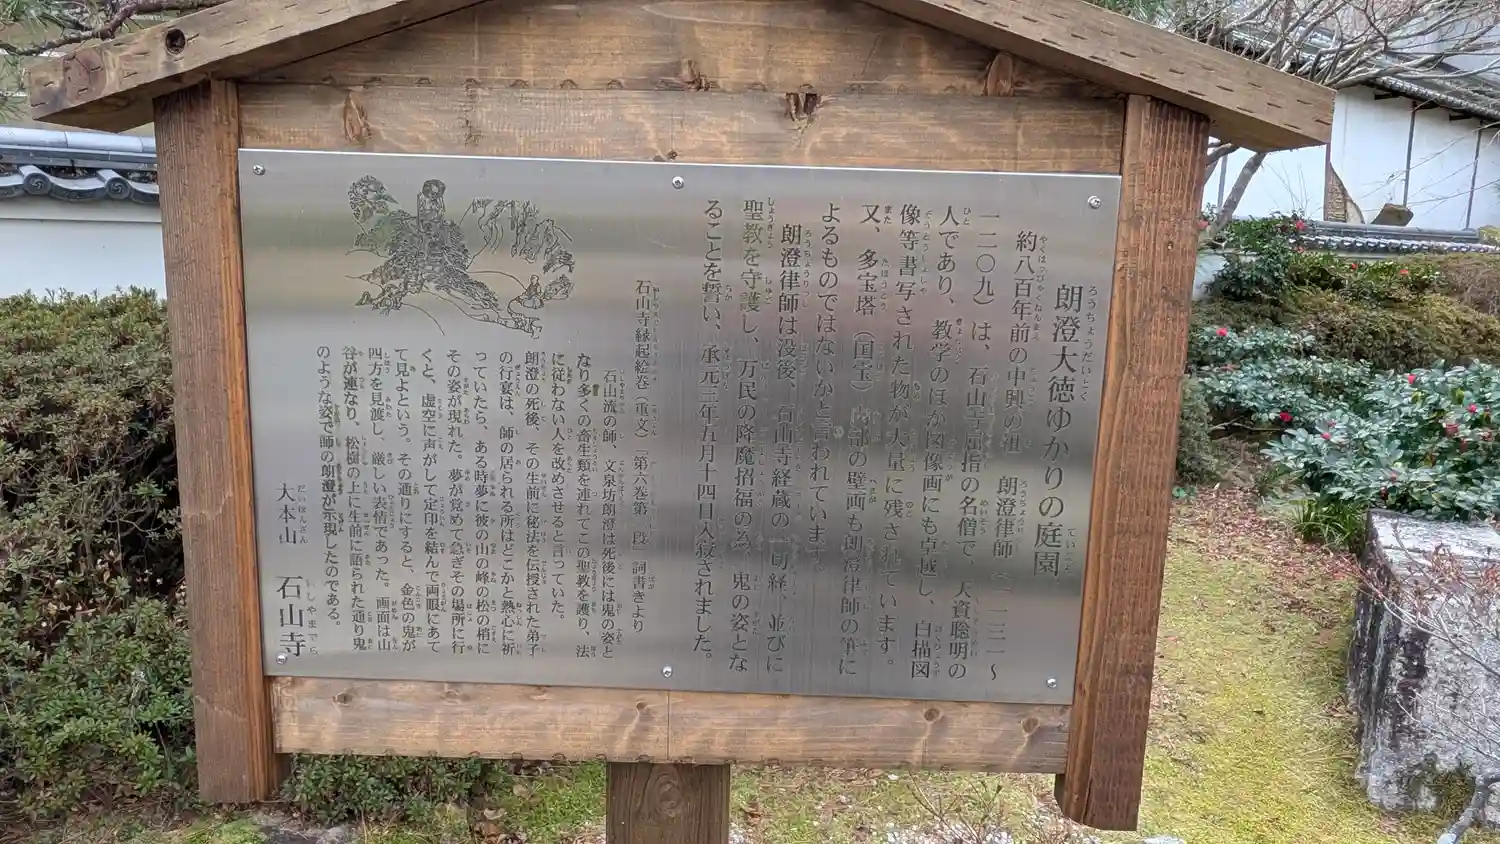 朗澄大徳ゆかりの庭園
約八百年前の中興の祖 朗澄律師(一一三一〜
一二〇九)は、石山寺屈指の名僧で、天資聡明の
人であり、教学のほか図像画にも卓越し、白描図
像等書写された物が大量に残されています。
又、多宝塔(国宝)内部の壁画も朗澄律師の筆に
よるものではないかと言われています。
朗澄律師は没後、石山寺経蔵の一切経、並びに
聖教を守護し、万民の降魔招福の為、鬼の姿とな
ることを誓い、承元三年五月十四日入寂されました。
石山寺縁起絵巻(重文)「第六巻第一段」詞書きより
石山流の師、文泉坊朗澄は死後には鬼の姿と
なり多くの畜生類を連れてこの聖教を護り、法
に従わない人を改めさせると言っていた。
朗澄の死後、その生前に秘法を伝授された弟子
の行宴は、師の居られる所はどこかと熱心に祈
っていたら、ある時夢に彼の山の峰の松の梢に
その姿が現れた。夢が覚めて急ぎその場所に行
くと、虚空に声がして定印を結んで両眼にあて
て見よという。その通りにすると、金色の鬼が
四方を見渡し、厳しい表情であった。画面は山
谷が連なり、松樹の上に生前に語られた通り鬼
のような姿で師の朗澄が示現したのである。
大本山 石山寺